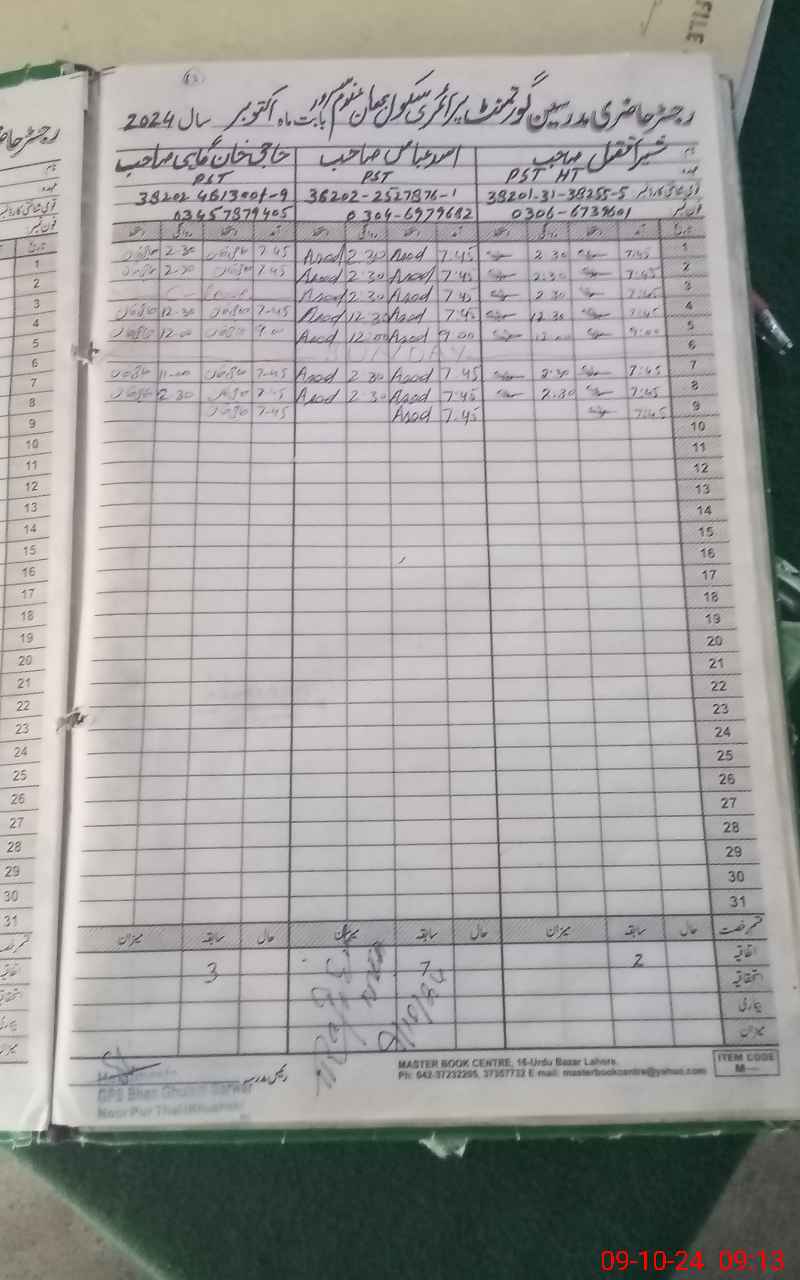 FILE
رجسٹر حاضری مدرسین گورنمنٹ پرائمری سکول بھان غلام سرور بابت ماہ اکتوبر سال 2024
نام شیر افضل صاحب اسد عباس صاحب حاجی خان گاہی صاحب
عہدہ PST HT PST PST
قومی شناختی کارڈ نمبر 38201-31-38255-5 36202-2527876-1 38202 4613001-9
فون نمبر 0306-6739601 0304-6979682 03457879405
تاریخ آمد دستخط روانگی دستخط آمد دستخط روانگی دستخط آمد دستخط روانگی دستخط
1 7:45 2.30 7.45 Asad 2.30 Asad 7.45 2.30
2 7:45 2.30 7.45 Asad 2.30 Asad 7.45 2.30
3 7:45 2.30 7.45 Asad 2.30 Asad
4 7:45 12.30 7.45 Asad 12.30 Asad 7.45 12.30
5 9:00 12.00 9.00 Asad 12.00 Asad 9.00 12.00
6 SUNDAY
7 7:45 2.30 7.45 Asad 2.30 Asad 7.45
8 7:45 2.30 7.45 Asad 2.30 Asad 2.30
9 7:45 7.45 Asad 7.45
10
11
12
13
14
15
16
17
18
19
20
21
22
23
24
25
26
27
28
29
30
31
قسم رخصت حال سابقہ میزان حال سابقہ میزان حال سابقہ میزان
اتفاقیہ 2 7 3
استحقاقیہ
بیماری
میزان
رئیس مدرسہ
GPS Bhan Ghulam Sarwar
Noor Pur Thal Khushab
MASTER BOOK CENTRE, 16-Urdu Bazar Lahore.
Ph: 042-37232205, 37357732 E mail: masterbookcentre@yahoo.com
ITEM CODE
M—
09-10-24 09:13